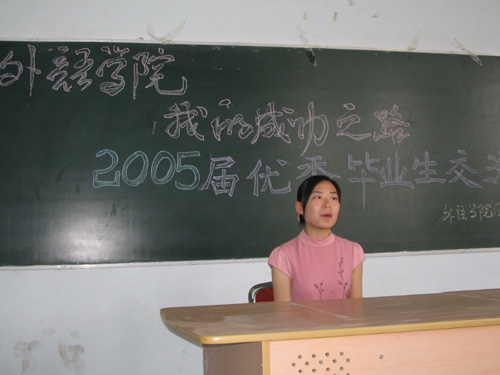 外語学院
我的成功之路
2005届优秀毕业生交
外语学院